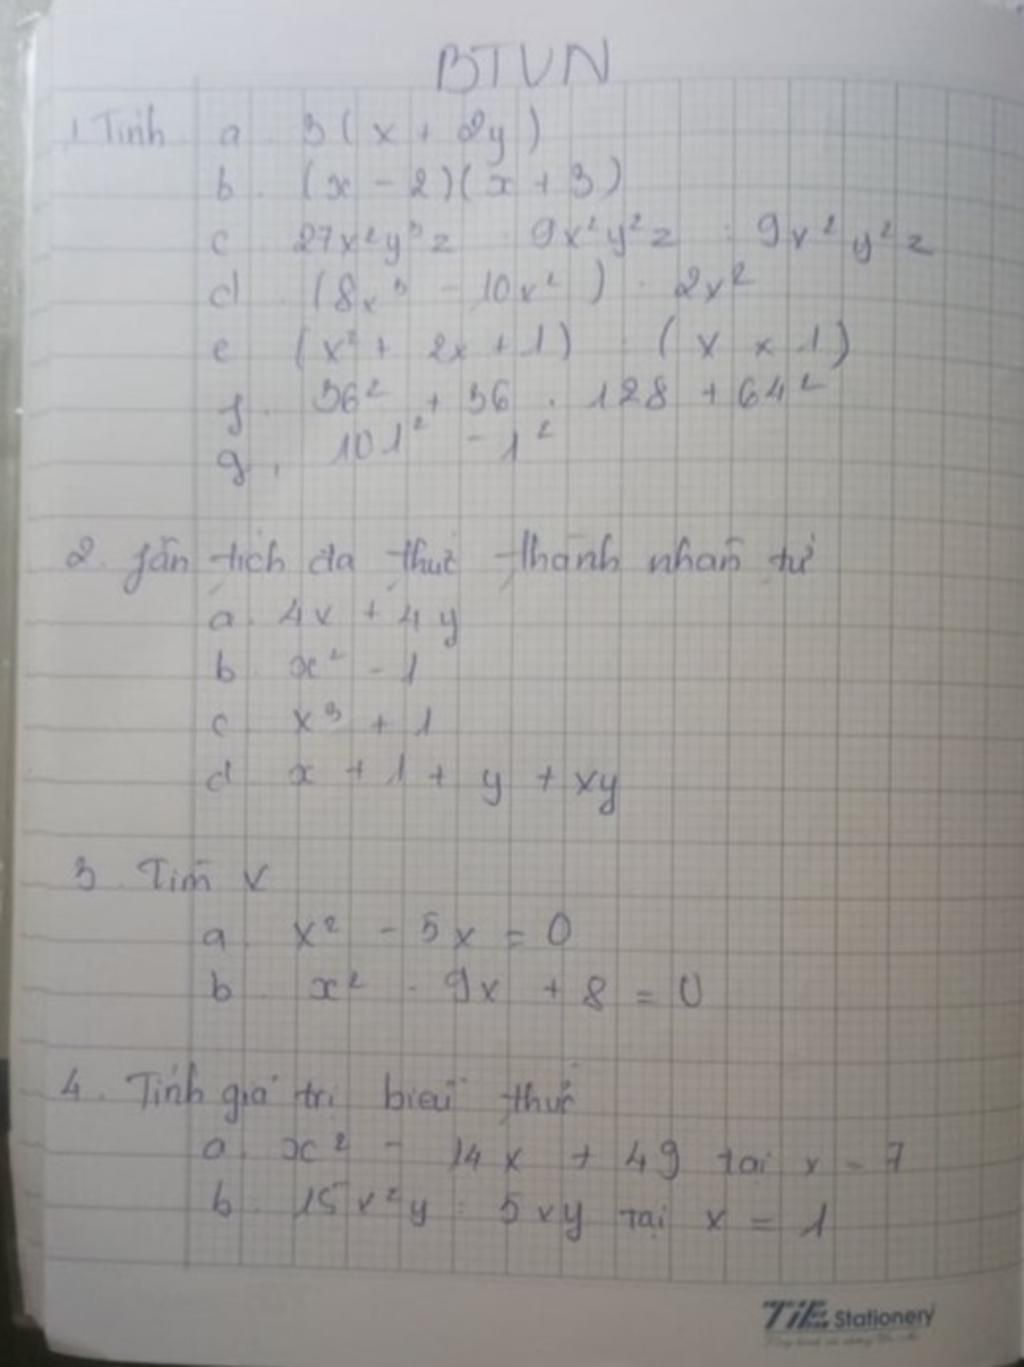 BTVN
1. Tính a 3(x + 2y)
b. (x - 2)(x + 3)
c 27x²y³z 9x²y²z : 9x²y²z
d. (8x³ - 10x²) : 2x²
e (x² + 2x + 1) : (x x 1)
f. 36² + 36 . 128 + 64²
g. 101² - 1²
2. fân tích đa thức thành nhân tử
a. 4x + 4y
b. x² - 1
c x³ + 1
d x + 1 + y + xy
3. Tìm x
a. x² - 5x = 0
b. x² - 9x + 8 = 0
4. Tính giá trị biểu thức
a. x² - 14x + 49 tại x = 7
b. 15x²y : 5xy tại x = 1
TiE Stationery